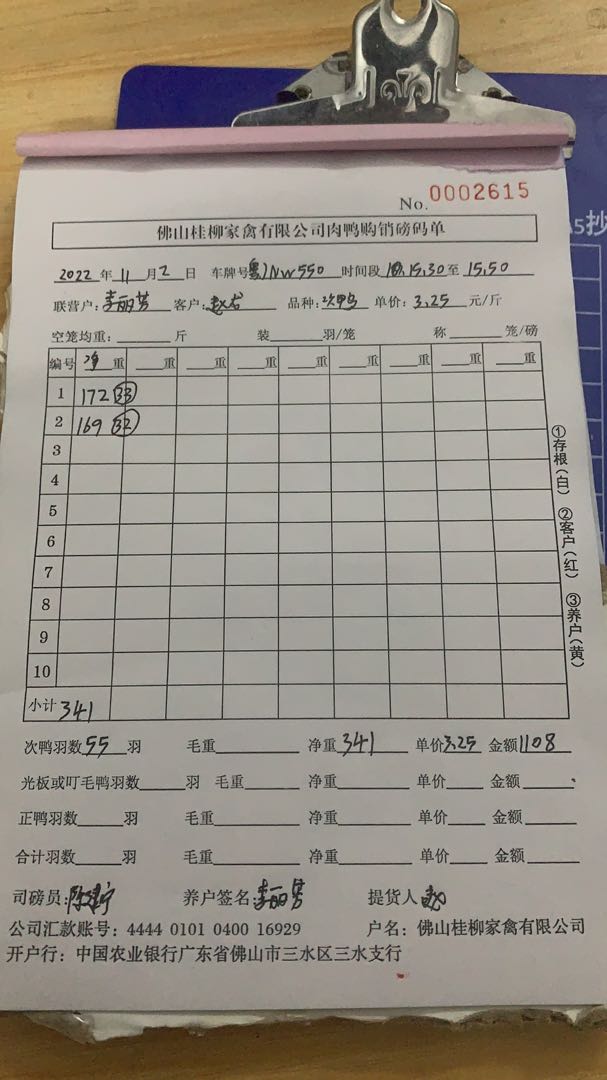 No. 0002615
佛山桂柳家禽有限公司肉鸭购销磅码单
2022年11月2日 车牌号粤JNW550 时间段 15.30至15.50
联营户:李丽芳 客户:赵 品种:次鸭 单价:3.25元/斤
空笼均重:______斤 装______羽/笼 称______笼/磅
编号 净重 ___重 ___重 ___重 ___重 ___重 ___重 ___重 ___重
1 172 33
2 169 32
3
4
5
6
7
8
9
10
小计 341
次鸭羽数55羽 毛重______ 净重341 单价3.25 金额1108
光板或叮毛鸭羽数______羽 毛重______ 净重______ 单价______ 金额______
正鸭羽数______羽 毛重______ 净重______ 单价______ 金额______
合计羽数______羽 毛重______ 净重______ 单价______ 金额______
司磅员: 养户签名:李丽芳 提货人赵
公司汇款账号:4444 0101 0400 16929 户名:佛山桂柳家禽有限公司
开户行:中国农业银行广东省佛山市三水区三水支行
①存根(白) ②客户(红) ③养户(黄)
A5抄